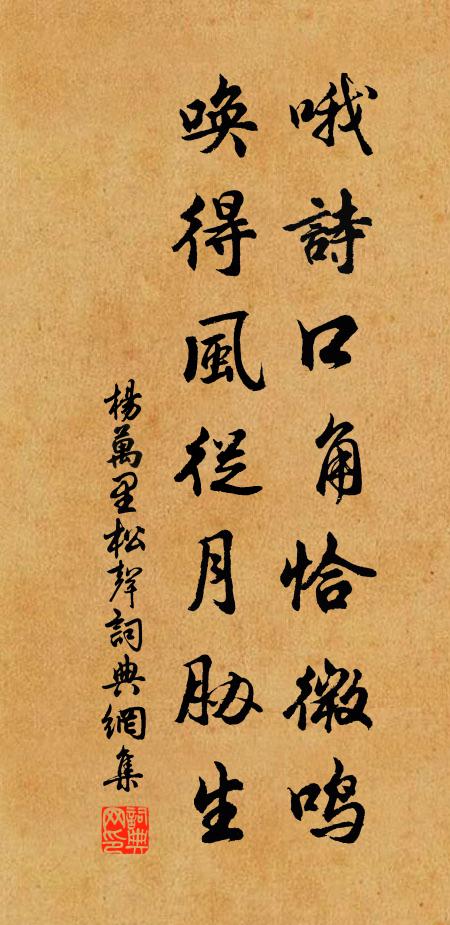 哦詩口角恰微鳴
喚得風從月胁生
楊萬里松聲詞典網集
詞典網印